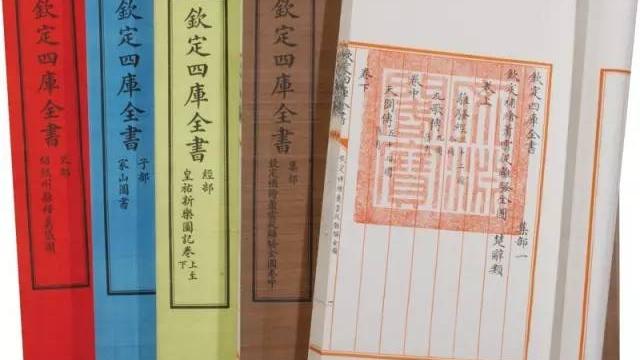 欽定四庫全書
史部
欽定四庫全書
子部
家山圖書
欽定四庫全書
經部
皇祐新樂圖記卷上至下
欽定四庫全書
集部
欽定補繪蕭雲從離騷全圖卷中
欽定四庫全書
集部一
楚辭類
欽定補繪蕭雲從離騷全圖
卷上
離騷經
九歌傳
卷中
天問傳五十四圖
卷下